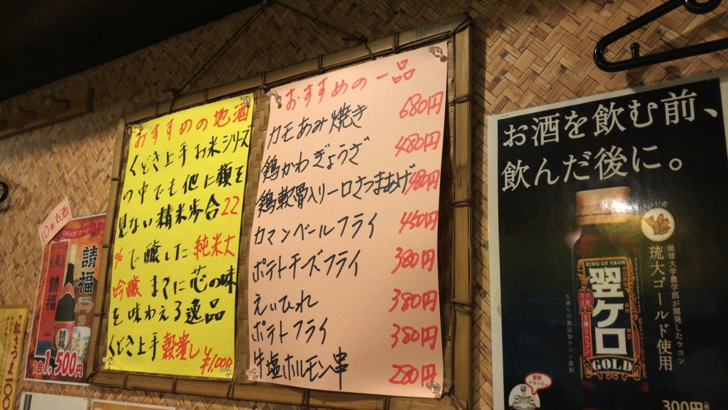 おすすめの地酒
くどき上手 お米シリーズ
の中でも他に類を
見ない精米歩合22
%で醸した純米大
吟醸 まさに芯の味
を味わえる逸品
くどき上手 穀潰し ¥1,000
おすすめの一品
カモあみ焼き 680円
鶏かわぎょうざ 480円
鶏軟骨入り一口さつまあげ 480円
カマンベールフライ 450円
ポテトチーズフライ 380円
えいひれ 380円
ポテトフライ 380円
牛塩ホルモン串 280円
お酒を飲む前、
飲んだ後に。
琉球大学農学部が開発したウコン
琉大ゴールド使用
KING OF UKON
翌ケロ
GOLD
300円
請福
請福
1,500円